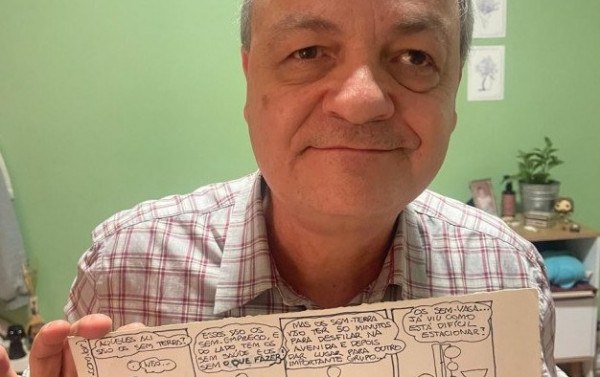 AQUELES ALI
SÃO OS SEM TERRA?
NÃO...
ESSES SÃO OS
SEM-EMPREGO, E
DO LADO, TEM OS
SEM SAÚDE E OS
SEM O QUE FAZER!
MAS OS SEM-TERRA
VÃO TER 50 MINUTOS
PARA DESFILAR NA
AVENIDA E DEPOIS
DAR LUGAR PARA OUTRO
IMPORTANTE GRUPO...
OS SEM-VAGA...
JÁ VIU COMO
ESTÁ DIFÍCIL
ESTACIONAR?